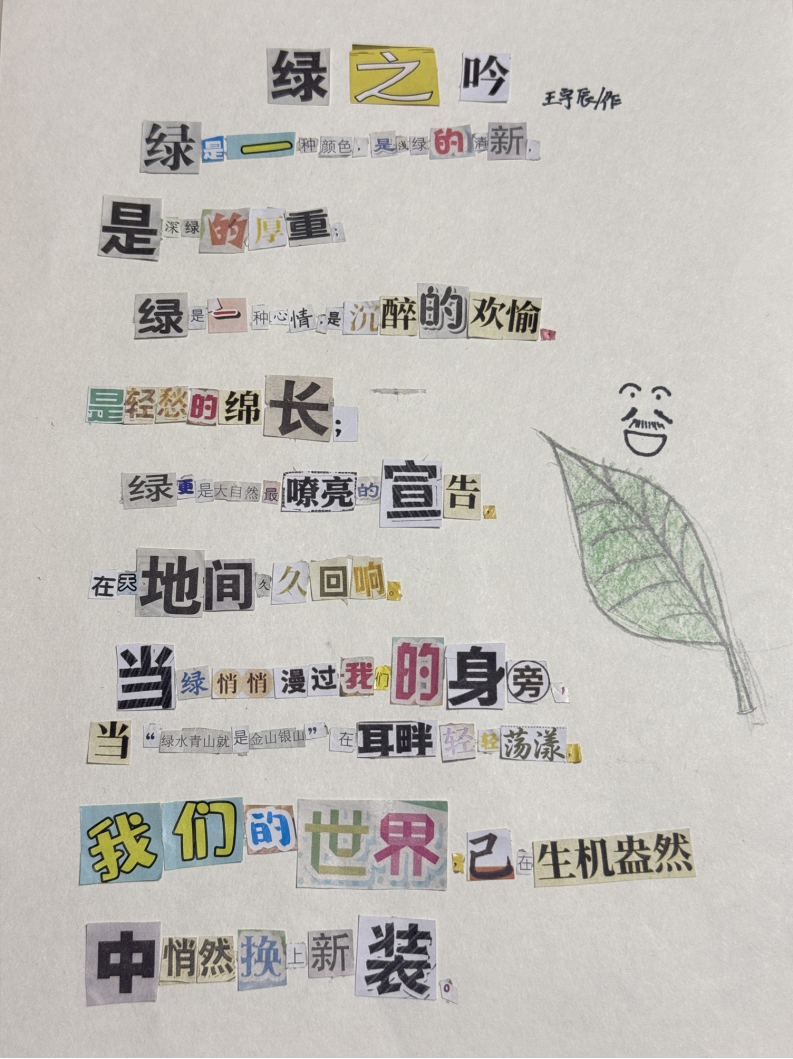 绿之吟
王宇辰/作
绿是一种颜色，是浅绿的清新，
是深绿的厚重；
绿是一种心情，是沉醉的欢愉，
是轻愁的绵长；
绿更是大自然最嘹亮的宣告，
在天地间久久回响。
当绿悄悄漫过我们的身旁，
当“绿水青山就是金山银山”在耳畔轻轻荡漾，
我们的世界，己在生机盎然
中悄然换上新装。